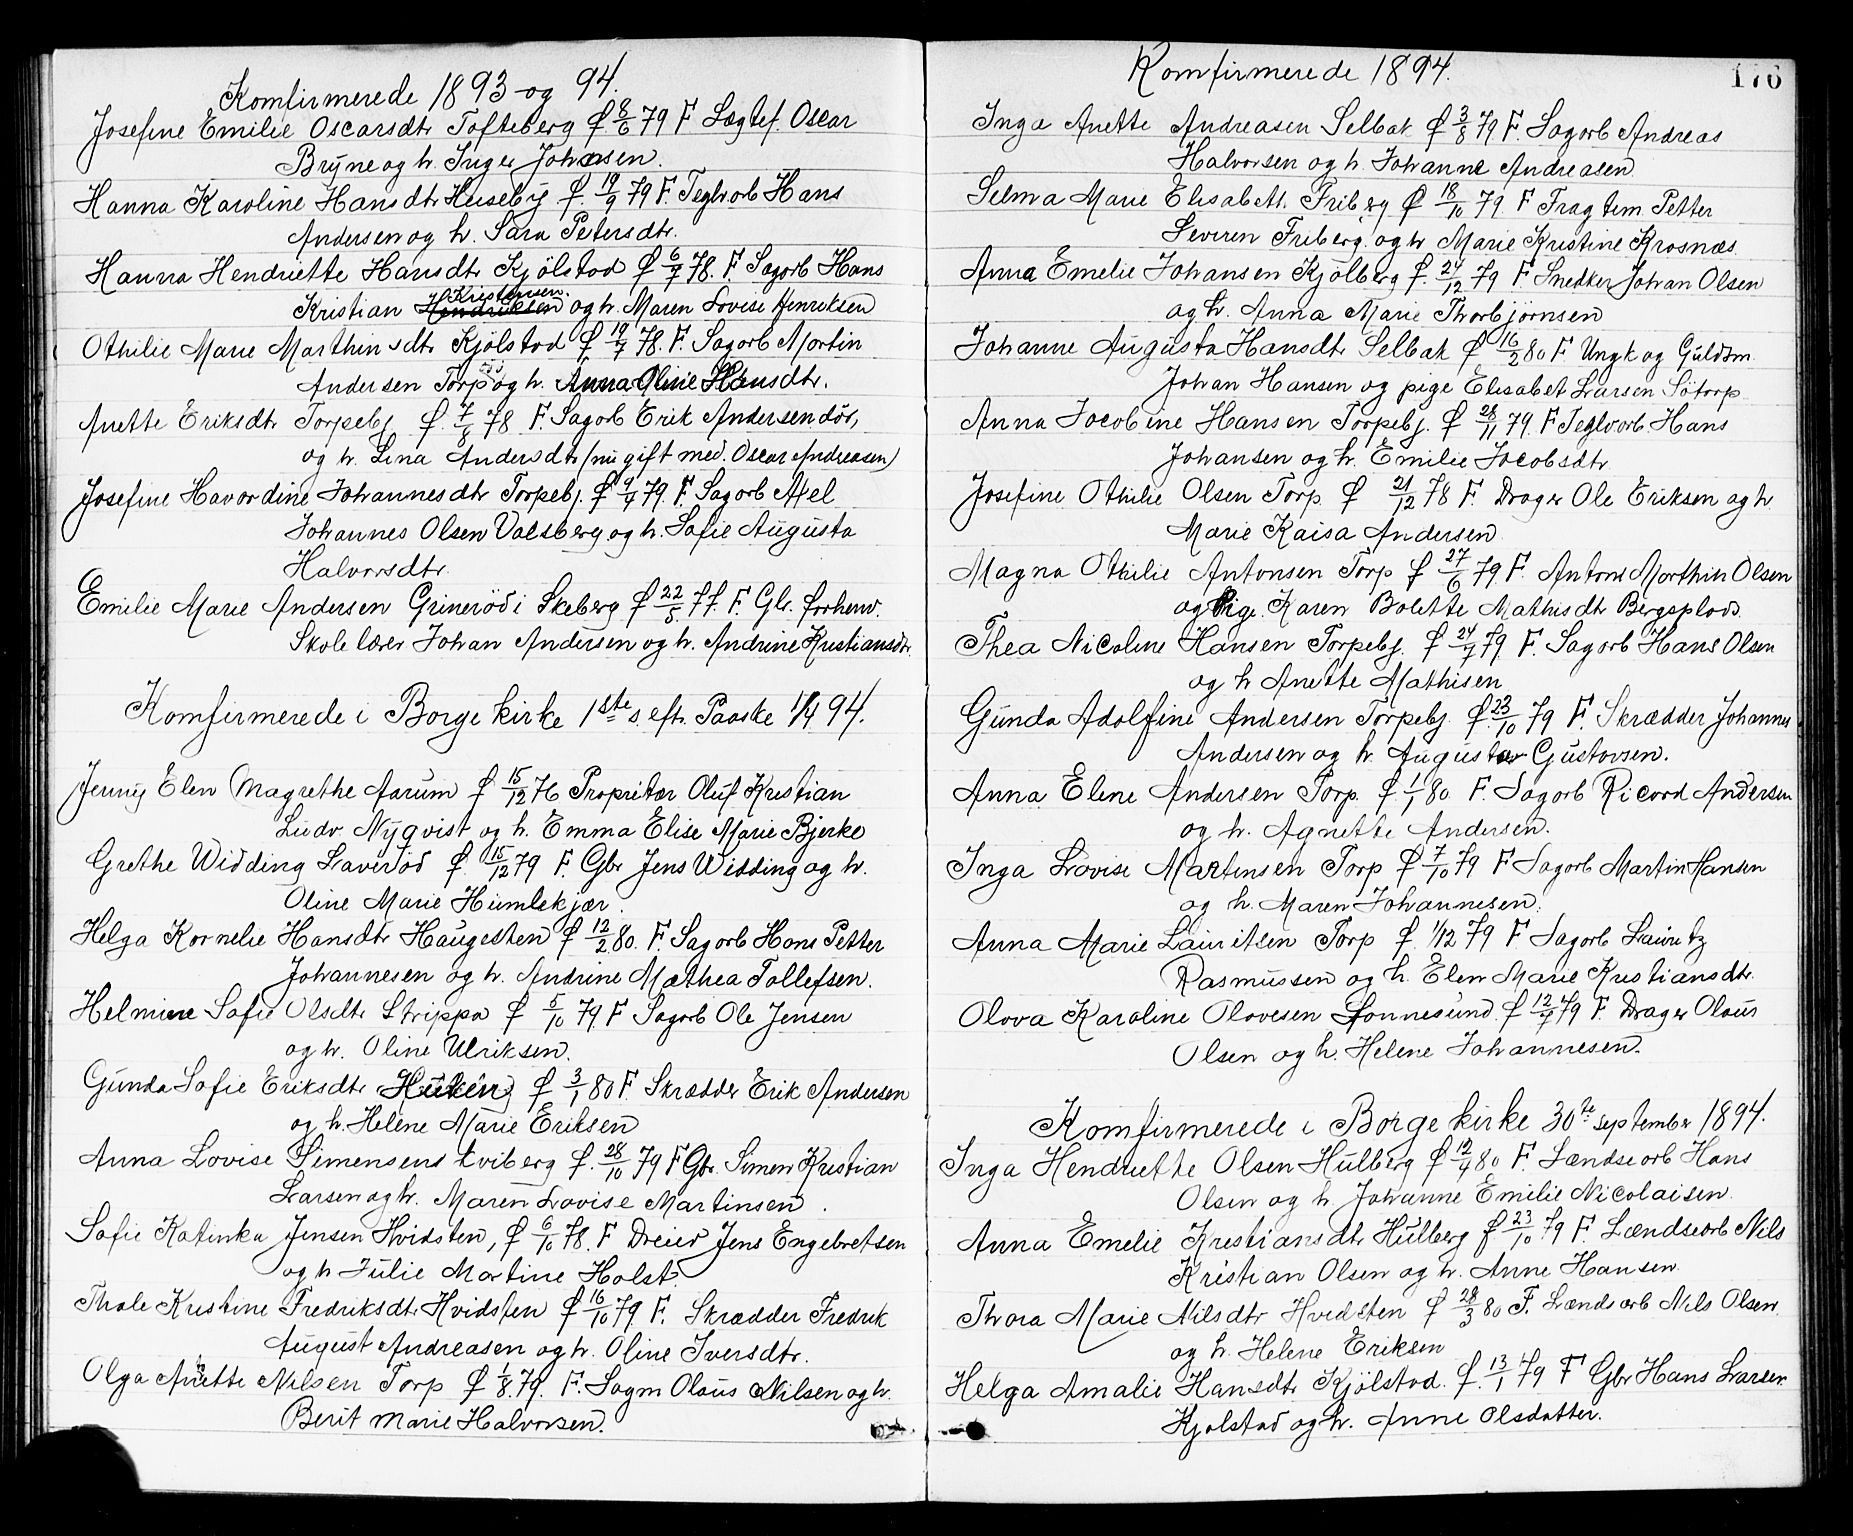 Komfirmerede 1893 og 94.
Josefine Emilie Oscarsdtr Tofteberg f 8/6 79 F Løgtef. Oscar
Bryne og h. Inger Johnsen.
Hanna Karoline Hansdtr Huseby f. 19/9 79 F. Teglvorb Hans
Andersen og h. Sara Petersdtr.
Hanna Hendriette Hansdtr Kjölstad f 6/7 78. F Sagorb Hans
Kristian Kristensen. og h. Maren Lovise Henriksen
Othilie Marie Marthinsdtr Kjölstad f 19/7 78. F. Sagorb Martin
Andersen Torp og h. Anna Oline Hansdtr.
Anette Eriksdtr Torpebj f. 7/8 78 F. Sagorb Erik Andersen död,
og h. Lina Andersdtr (nu gift med. Oscar Andreasen)
Josefine Havordine Johannesdtr Torpebj. f 9/4 79. F. Sagorb Axel
Johannes Olsen Valsberg og h. Sofie Augusta
Halvorsdtr.
Emilie Marie Andersen Grineröd i Skeberg f 22/5 77. F. Gbr. forhenv.
Skolelærer Johan Andersen og h. Andrine Kristiansdtr.
Komfirmerede i Borge kirke 1ste s. eftr. Paaske 1/4 94.
Jenny Elen Magrethe Aarum f 15/12 76 Propritær Oluf Kristian
Ludv. Nyqvist og h. Emma Elise Marie Bjerke
Grethe Widding Laveröd f. 15/12 79 F. Gbr Jens Widding og h.
Oline Marie Humlekjær.
Helga Kornelie Hansdtr Haugesten f 12/2 80. F. Sagorb Hans Petter
Johannesen og h. Andrine Mathea Tollefsen.
Helmine Sofie Olsdtr Strippa f 5/10 79 F Sagorb Ole Jensen
og h. Oline Ulriksen.
Gunda Sofie Eriksdtr Huken f 3/1 80 F. Skrædder Erik Andersen
og h. Helene Marie Eriksen
Anna Lovise Simensens Kviberg f. 28/10 79 F Gbr. Simen Kristian
Larsen og h. Maren Lovise Martinsen.
Sofie Katinka Jensen Hvidsten, f 6/10 78. F Dreier Jens Engebretsen
og h Julie Martine Holst.
Thale Kristine Fredriksdtr Hvidsten f 16/10 79 F. Skrædder Fredrik
August Andreasen og h. Oline Iversdtr.
Olga Anette Nilsen Torp f 1/8. 79. F. Sagm Olaus Nilsen og h.
Berit Marie Halvorsen.
Komfirmerede 1894.
176
Inga Anette Andreasen Selbak f 3/8 79 F. Sagorb Andreas
Halvorsen og h. Johanne Andreasen
Selma Marie Elisabeth Friberg f 18/10 79. F Fragtem Petter
Severen Friberg. og h Marie Kristine Krosnæs
Anna Emelie Johansen Kjölberg f. 24/12 79 F Snedker Johan Olsen
og h. Anna Marie Thorbjörnsen
Johanne Augusta Hansdtr Selbak f 16/2 80 F. Ungk og Guldsm
Johan Hansen og pige Elisabet Larsen Sötorp
Anna Jocobine Hansen Torpebj. f 28/11 79. F Teglvorb. Hans
Johansen og h. Emilie Jocobsdtr
Josefine Othilie Olsen Torp f 21/12 78 F. Drager Ole Eriksen og h
Marie Kaisa Andersen
Magna Othilie Antonsen Torp f 27/6 79 F. Anton Morthin Olsen
og Pige. Karen Bolette Mathisdtr Bergsplads.
Thea Nicoline Hansen Torpebj. f 24/7 79. F. Sagorb Hans Olsen
og h Anette Mathisen
Gunda Adolfine Andersen Torpebj f. 23/10 79 F. Skrædder Johannes
Andersen og h. Augusta Gustavsen.
Anna Elene Andersen Torp. f 1/1 80 F. Sagorb Ricard Andersen
og h. Agnette Andersen.
Inga Lovise Martensen Torp f 7/10 79 F Sagorb Martin Hansen
og h. Maren Johannesen.
Anna Marie Lauritsen Torp f. 1/12 79 F Sagorb Lauritz
Rasmussen og h. Elen Marie Kristiansdtr.
Olava Karoline Olavesen Sonnesund. f 12/7 79 F. Drager Olaus
Olsen og h. Helene Johannesen.
Komfirmerede i Borge kirke 30te September 1894.
Inga Hendriette Olsen Hulberg f 12/4 80 F. Lændseorb Hans
Olsen og h Johanne Emilie Nicolaisen.
Anna Emelie Kristiansdtr Hulberg f 23/10 79 F. Lændseorb Nils
Kristian Olsen og h. Anne Hansen
Thora Marie Nilsdtr Hvidsten f 28/3 80 F. Lændsorb Nils Olsen.
og h. Helene Eriksen
Helga Amalie Hansdtr Kjölstad. f. 13/1 79 F Gbr Hans Larsen
Kjolstad og h. Anne Olsdatter.